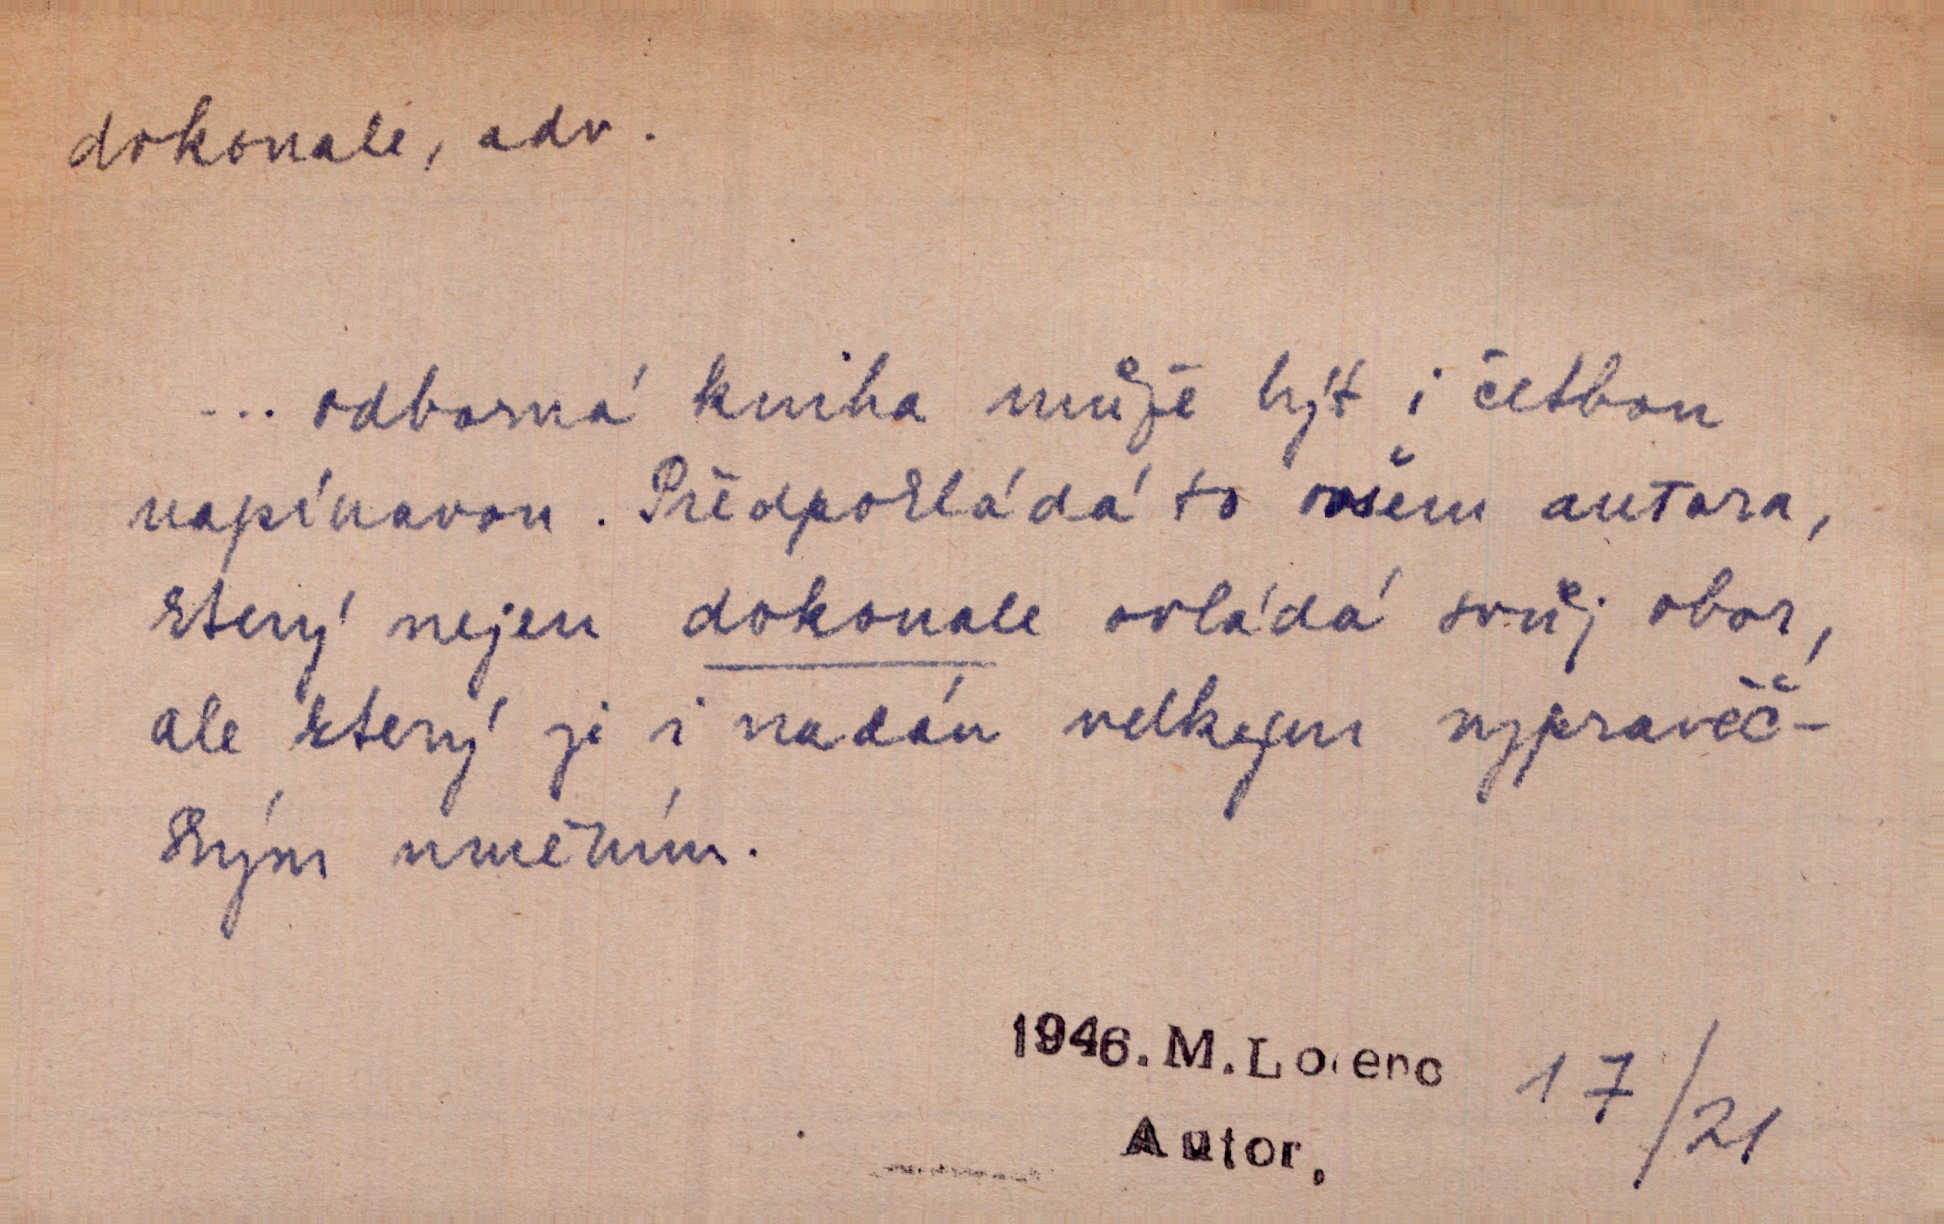 dokonale, adv.
... odborná kniha může být i četbou
napínavou. Předpokládá to ovšem autora,
který nejen dokonale ovládá svůj obor,
ale který je i nadán velkým vypravěč-
ským uměním.
1946. M. Lorenc 17/21
Autor,